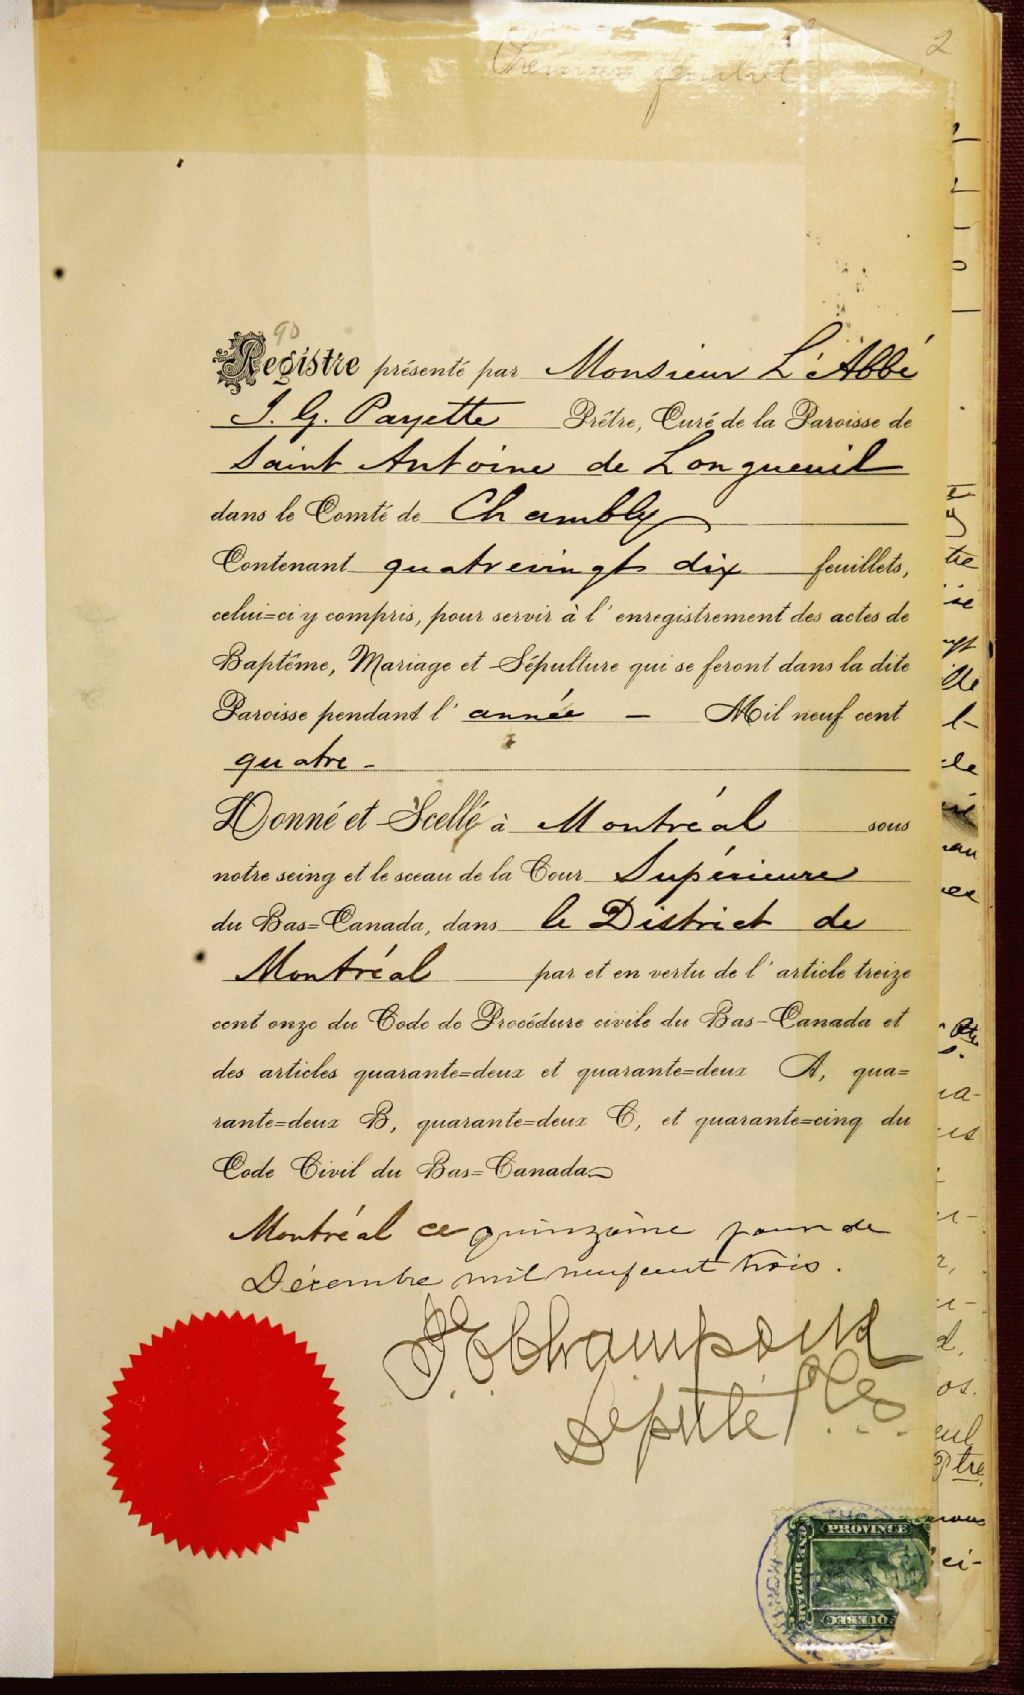 2
Premier feuillet
90
Registre présenté par Monsieur L'Abbé
J. G. Payette Prêtre, Curé de la Paroisse de
Saint Antoine de Longueuil
dans le Comté de Chambly
Contenant quatrevingt dix feuillets,
celui=ci y compris, pour servir à l'enregistrement des actes de
Baptême, Mariage et Sépulture qui se feront dans la dite
Paroisse pendant l'année – Mil neuf cent
quatre -
Donné et Scellé à Montréal sous
notre seing et le sceau de la Cour Supérieure
du Bas=Canada, dans le District de
Montréal par et en vertu de l'article treize
cent onze du Code de Procédure civile du Bas-Canada et
des articles quarante=deux et quarante=deux A, qua=
rante=deux B, quarante=deux C, et quarante=cinq du
Code Civil du Bas=Canada
Montréal ce quinzième jour de
Décembre mil neuf cent trois.
Député P.C.S.
PROVINCE
ONE DOLLAR
QUEBEC